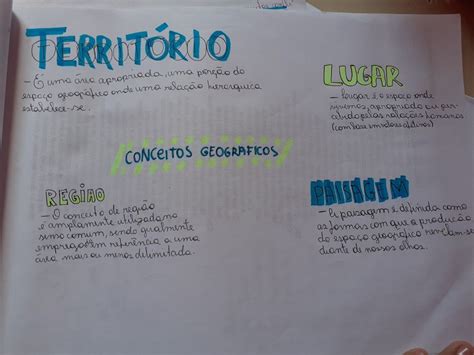 TERRITÓRIO
- É uma área apropriada, uma porção do
espaço geográfico onde uma relação hierárquica
estabelece-se.
LUGAR
- Lugar é o espaço onde
vivemos, apropriado ou per-
cebido pelas relações humanas
(com base em
CONCEITOS GEOGRAFICOS
REGIAO
- O conceito de região
é amplamente utilizado no
senso comum, sendo geralmente
empregado em referência a uma
área mais ou menos delimitada.
PAISAGEM
- A paisagem é definida como
as formas com que a produção
do espaço geográfico
diante de nossos olhos.